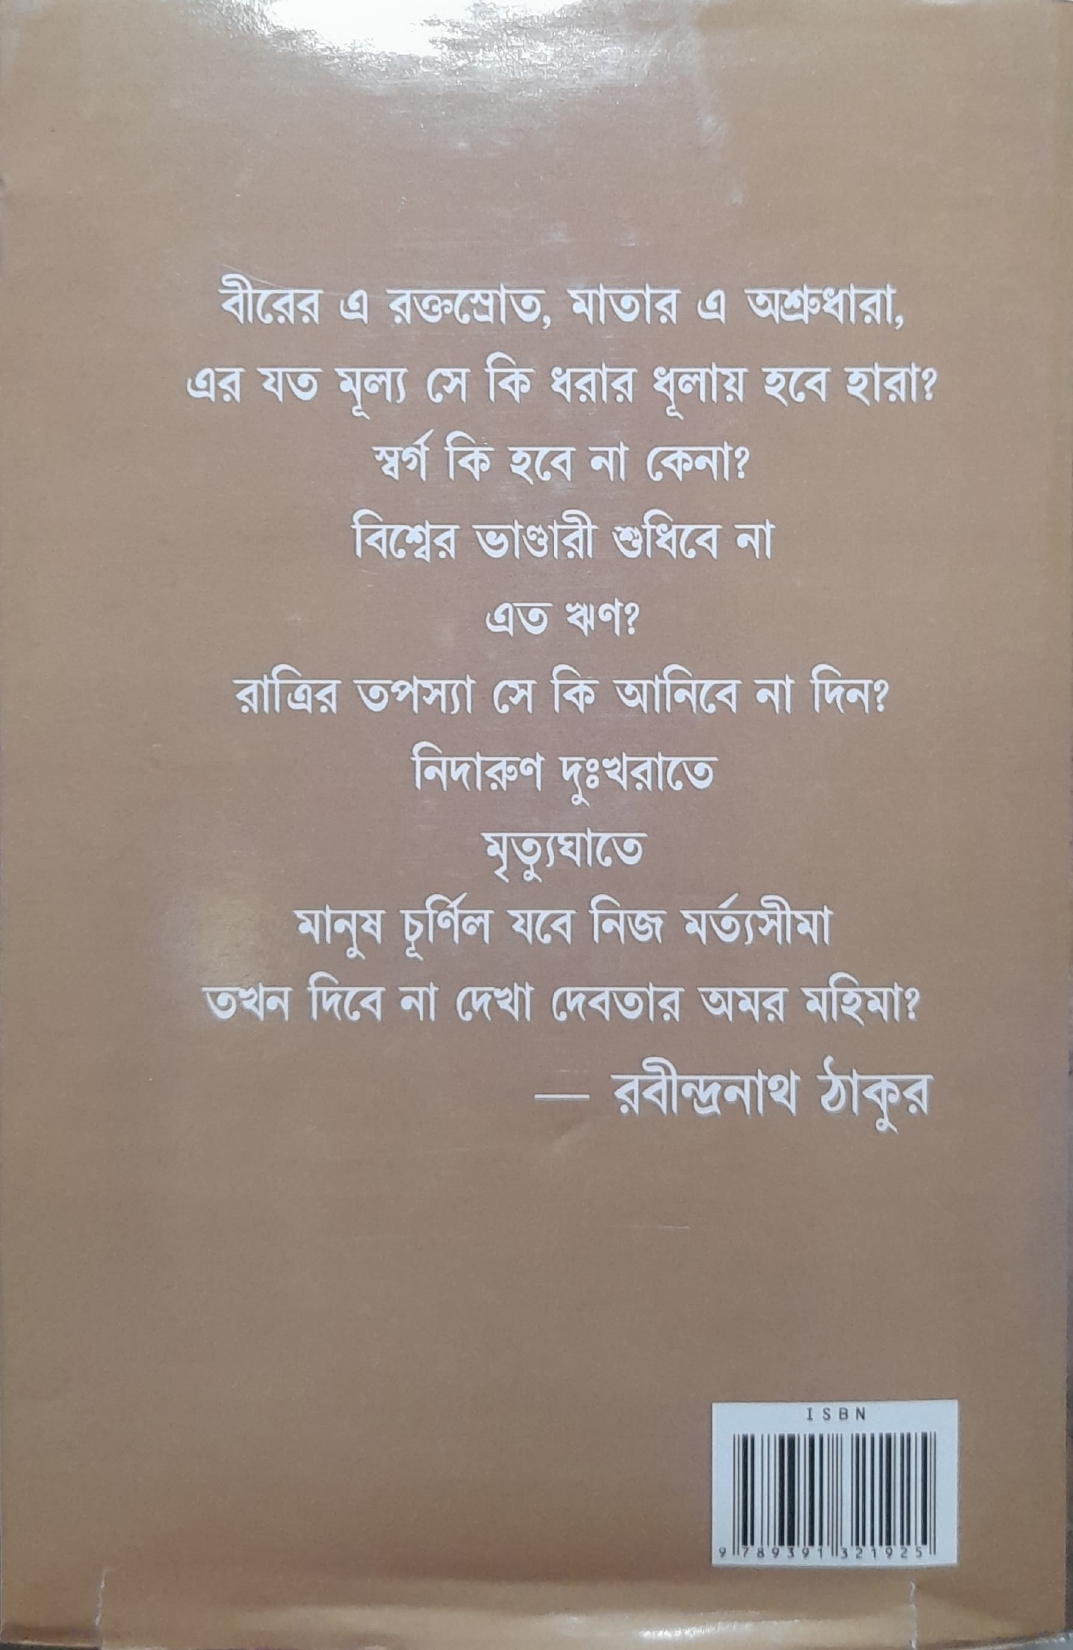 বীরের এ রক্তস্রোত, মাতার এ অশ্রুধারা,
এর যত মূল্য সে কি ধরার ধূলায় হবে হারা?
স্বর্গ কি হবে না কেনা?
বিশ্বের ভাণ্ডারী শুধিবে না
এত ঋণ?
রাত্রির তপস্যা সে কি আনিবে না দিন?
নিদারুণ দুঃখরাতে
মৃত্যুঘাতে
মানুষ চূর্ণিল যবে নিজ মর্ত্যসীমা
তখন দিবে না দেখা দেবতার অমর মহিমা?
— রবীন্দ্রনাথ ঠাকুর
ISBN
9 789391 321925